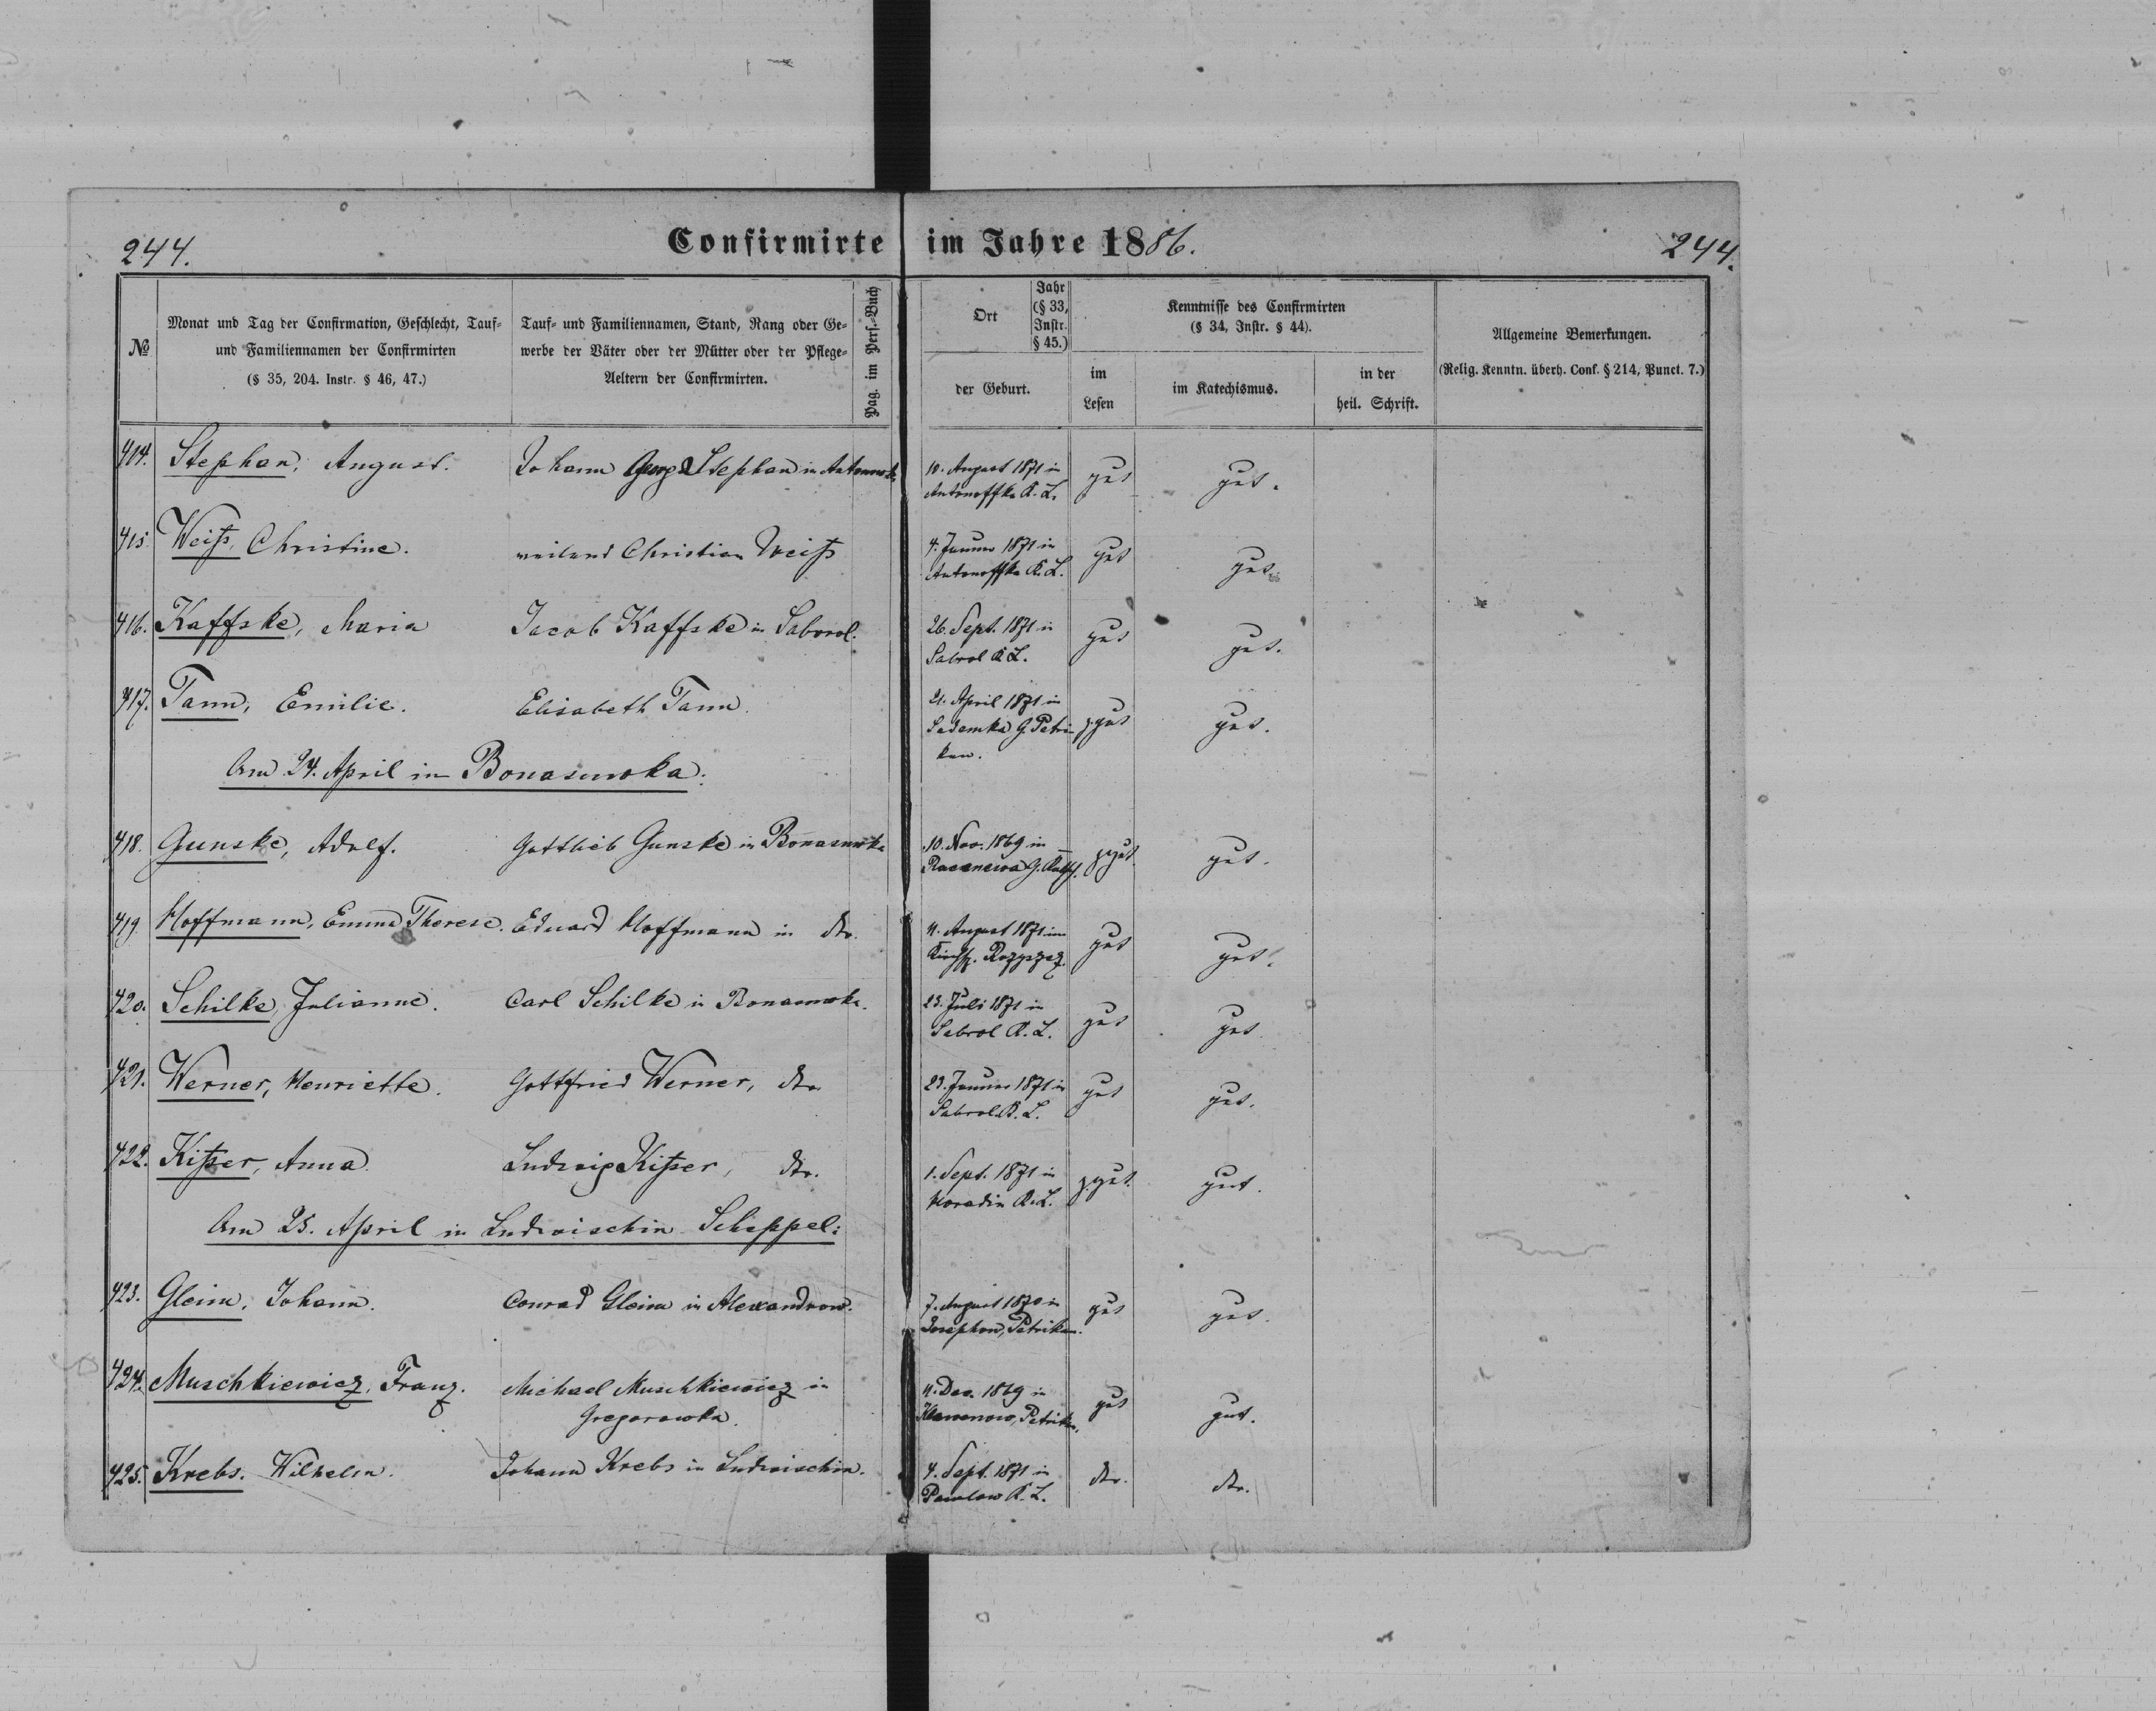 244.
Confirmirte im Jahre 1886.
244.
№
Monat und Tag der Confirmation, Geschlecht, Tauf-
und Familiennamen der Confirmirten
(§ 35, 204. Instr. § 46, 47.)
Tauf- und Familiennamen, Stand, Rang oder Ge-
werbe der Väter oder der Mütter oder der Pflege-
Aeltern der Confirmirten.
Pag. im Pers.-Buch
Ort
Jahr
(§ 33,
Instr.
§ 45.)
der Geburt.
Kenntnisse des Confirmirten
(§ 34, Instr. § 44).
im
Lesen
im Katechismus.
in der
heil. Schrift.
Allgemeine Bemerkungen.
(Relig. Kenntn. überh. Conf. § 214, Punct. 7.)
414. Stephan, August. Johann Georg Stephan in 10. August 1871 in gut gut.
Antonoffka K. L.
415. Weiß, Christine. weiland Christian Weiß 4. Januar 1871 in gut gut.
Antonoffka K. L.
416. Kaffske, Maria Jacob Kaffske in Saborol. 26. Sept. 1871 in gut gut.
Sabrol K. L.
417. Tann, Emilie. Elisabeth Tann. 21. April 1871 in z. gut gut.
Sademka G. Petri-
kau.
Am 24. April in Bonasuwka:
418. Gunske, Adolf. Gottlieb Gunske in Bonasuwka 10. Nov. 1869 in z. gut gut.
G.
419 Hoffmann, Emma Therese. Eduard Hoffmann in dto. August 1871 im gut gut.
Kirchsp. Rozyszcz.
420. Schilke, Julianne. Carl Schilke in Bonasuwka. 23. Juli 1871 in gut gut.
Sabrol K. L.
421. Werner, Henriette. Gottfried Werner, dto. 23. Januar 1871 in gut gut.
Sabrol K. L.
422. Kißer, Anna. Ludwig Kißer, dto. 1. Sept. 1871 in z. gut. gut.
Horadin K. L.
Am 25. April in Ludwischin Scheppel:
423. Gleim, Johann. Conrad Gleim in Alexandrow. 7. August 1870 in gut gut.
Josephow, Petrikau.
424. Muschkiewicz, Franz. Michael Muschkiewicz in Dec. 1869 in gut gut.
Gregorowka. Petrikau.
425. Krebs. Wilhelm. Johann Krebs in Ludwischin. 4. Sept. 1871 in dto. dto.
Pawlow K. L.